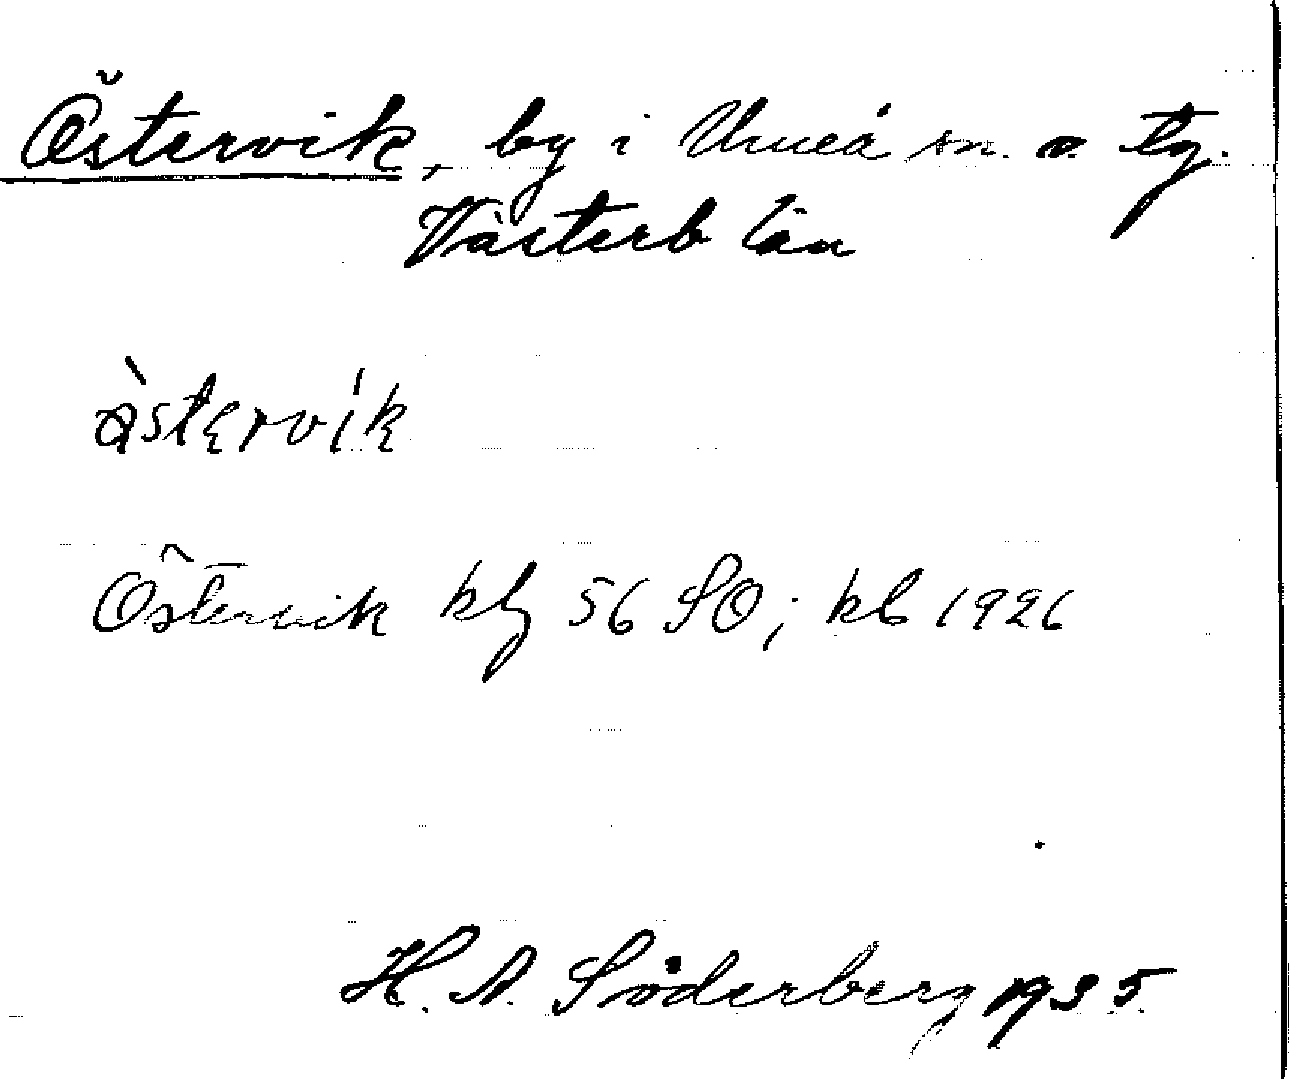 Östervik, by i Umeå sn. o. tg.
Västerb län
Östervik kbl 56 SO; kb 1926
H. A. Söderberg 1935